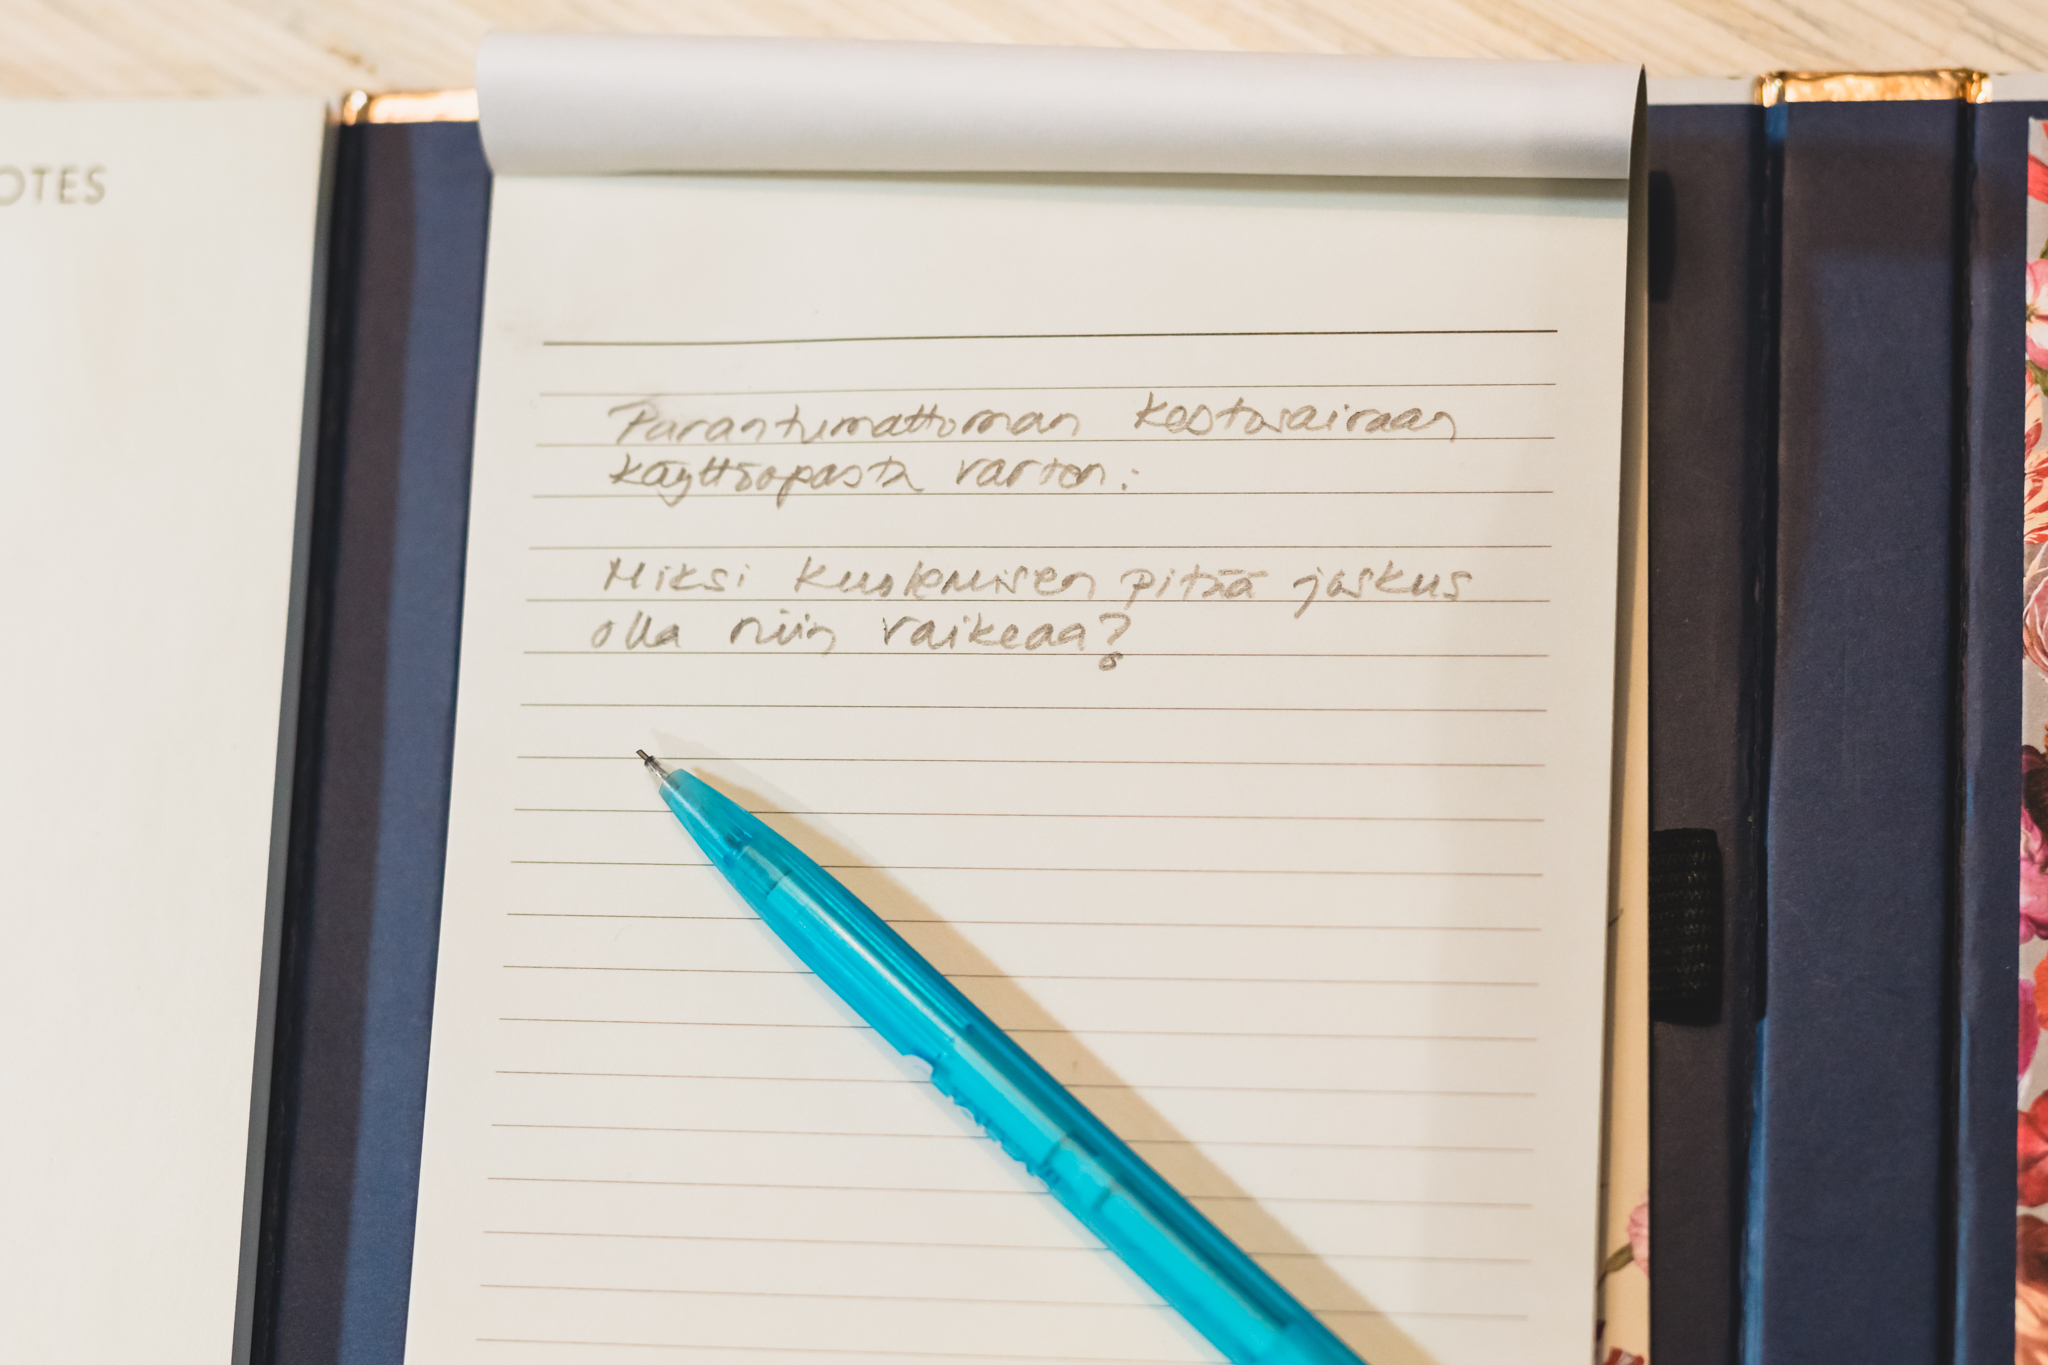 OTES
Parantumattoman kestosairaan
käyttöopasta varten:
Miksi kuolemisen pitää joskus
olla niin vaikeaa?